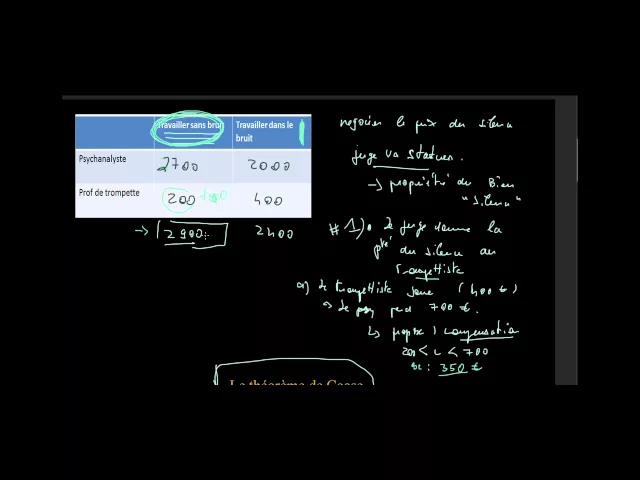 Travailler sans bruit
Travailler dans le bruit
Psychanalyste 2700 2000
Prof de trompette 200 400
→ 2900 2400
négocier le prix du silence
juge va statuer.
→ propriété du Bien
"silence"
#1) Le juge donne la
pté du silence au
trompettiste
a) Le trompettiste joue (400 €)
→ le psy perd 700 €.
↳ propose 1 compensation
200 < c < 700
350 €
Le théorème de Coase